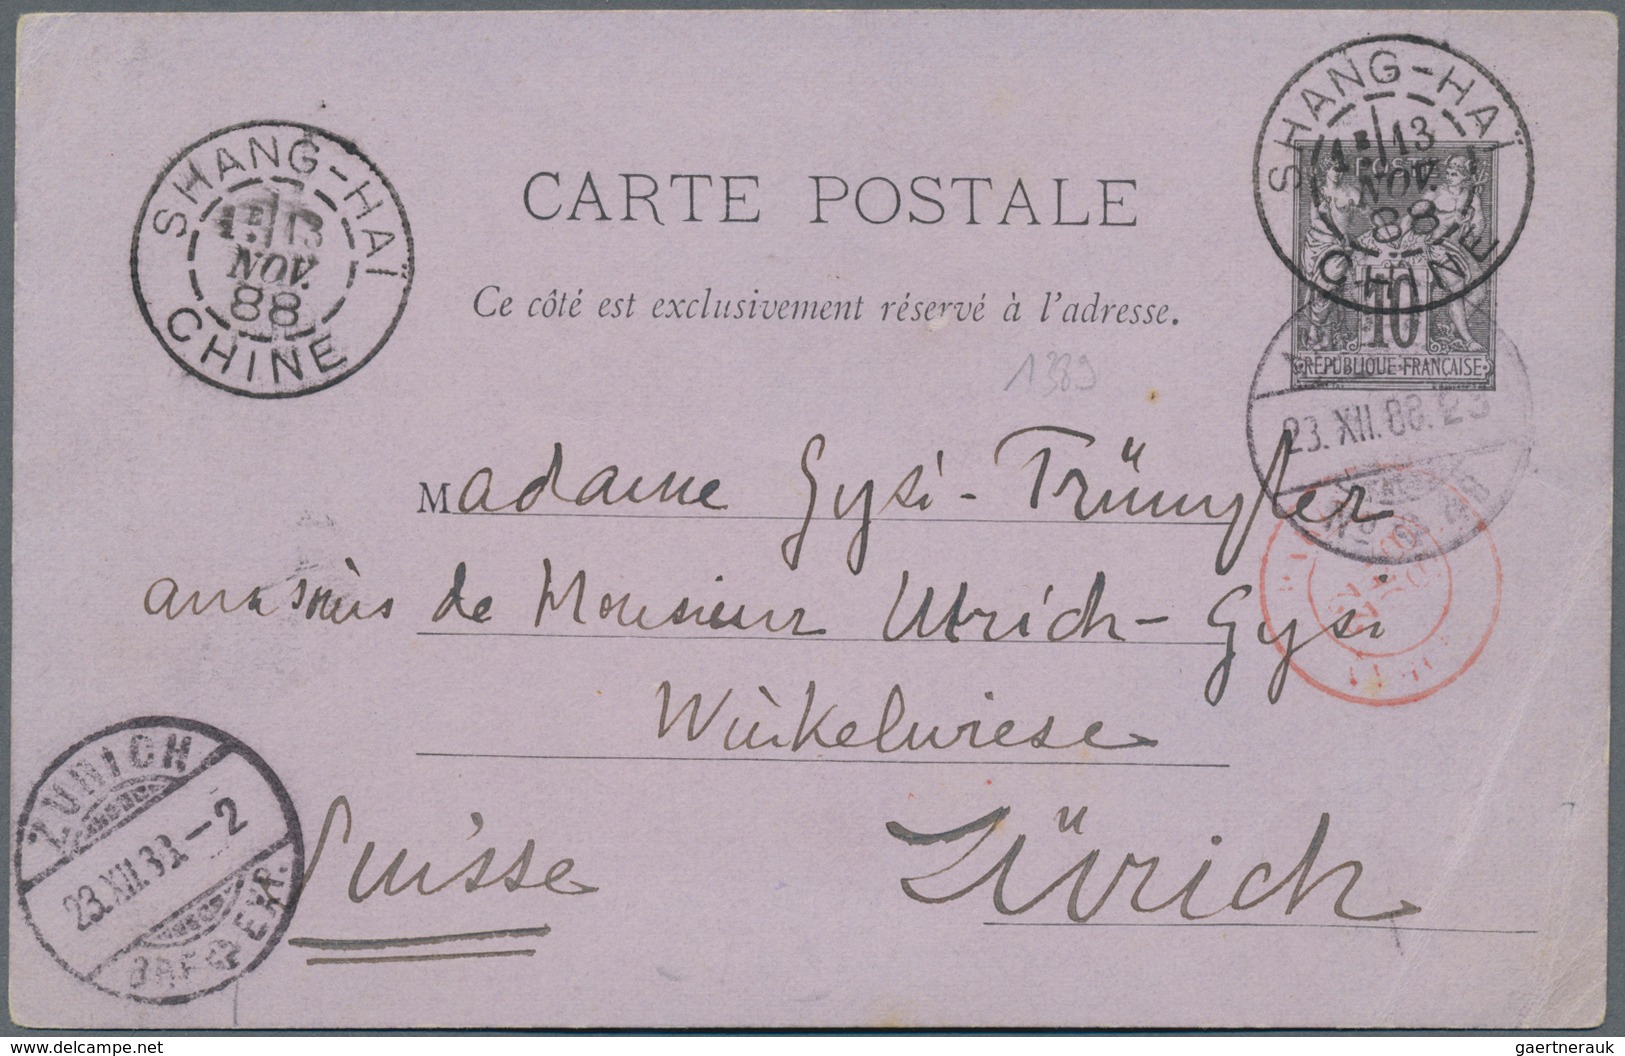 SHANG-HAÏ
1E/13
NOV.
88
CHINE
SHANG-HAÏ
1E/13
NOV.
88
CHINE
CARTE POSTALE
POSTES
10
RÉPUBLIQUE FRANÇAISE
Ce côté est exclusivement réservé à l'adresse.
1389
23.XII.88.23
No
Madame Gysi-Trümpler
aux soins de Monsieur Ulrich-Gysi
Winkelwiese
Suisse Zürich
ZÜRICH
23.XII.88-2
BRF EXP.
www.delcampe.net
gaertnerauk